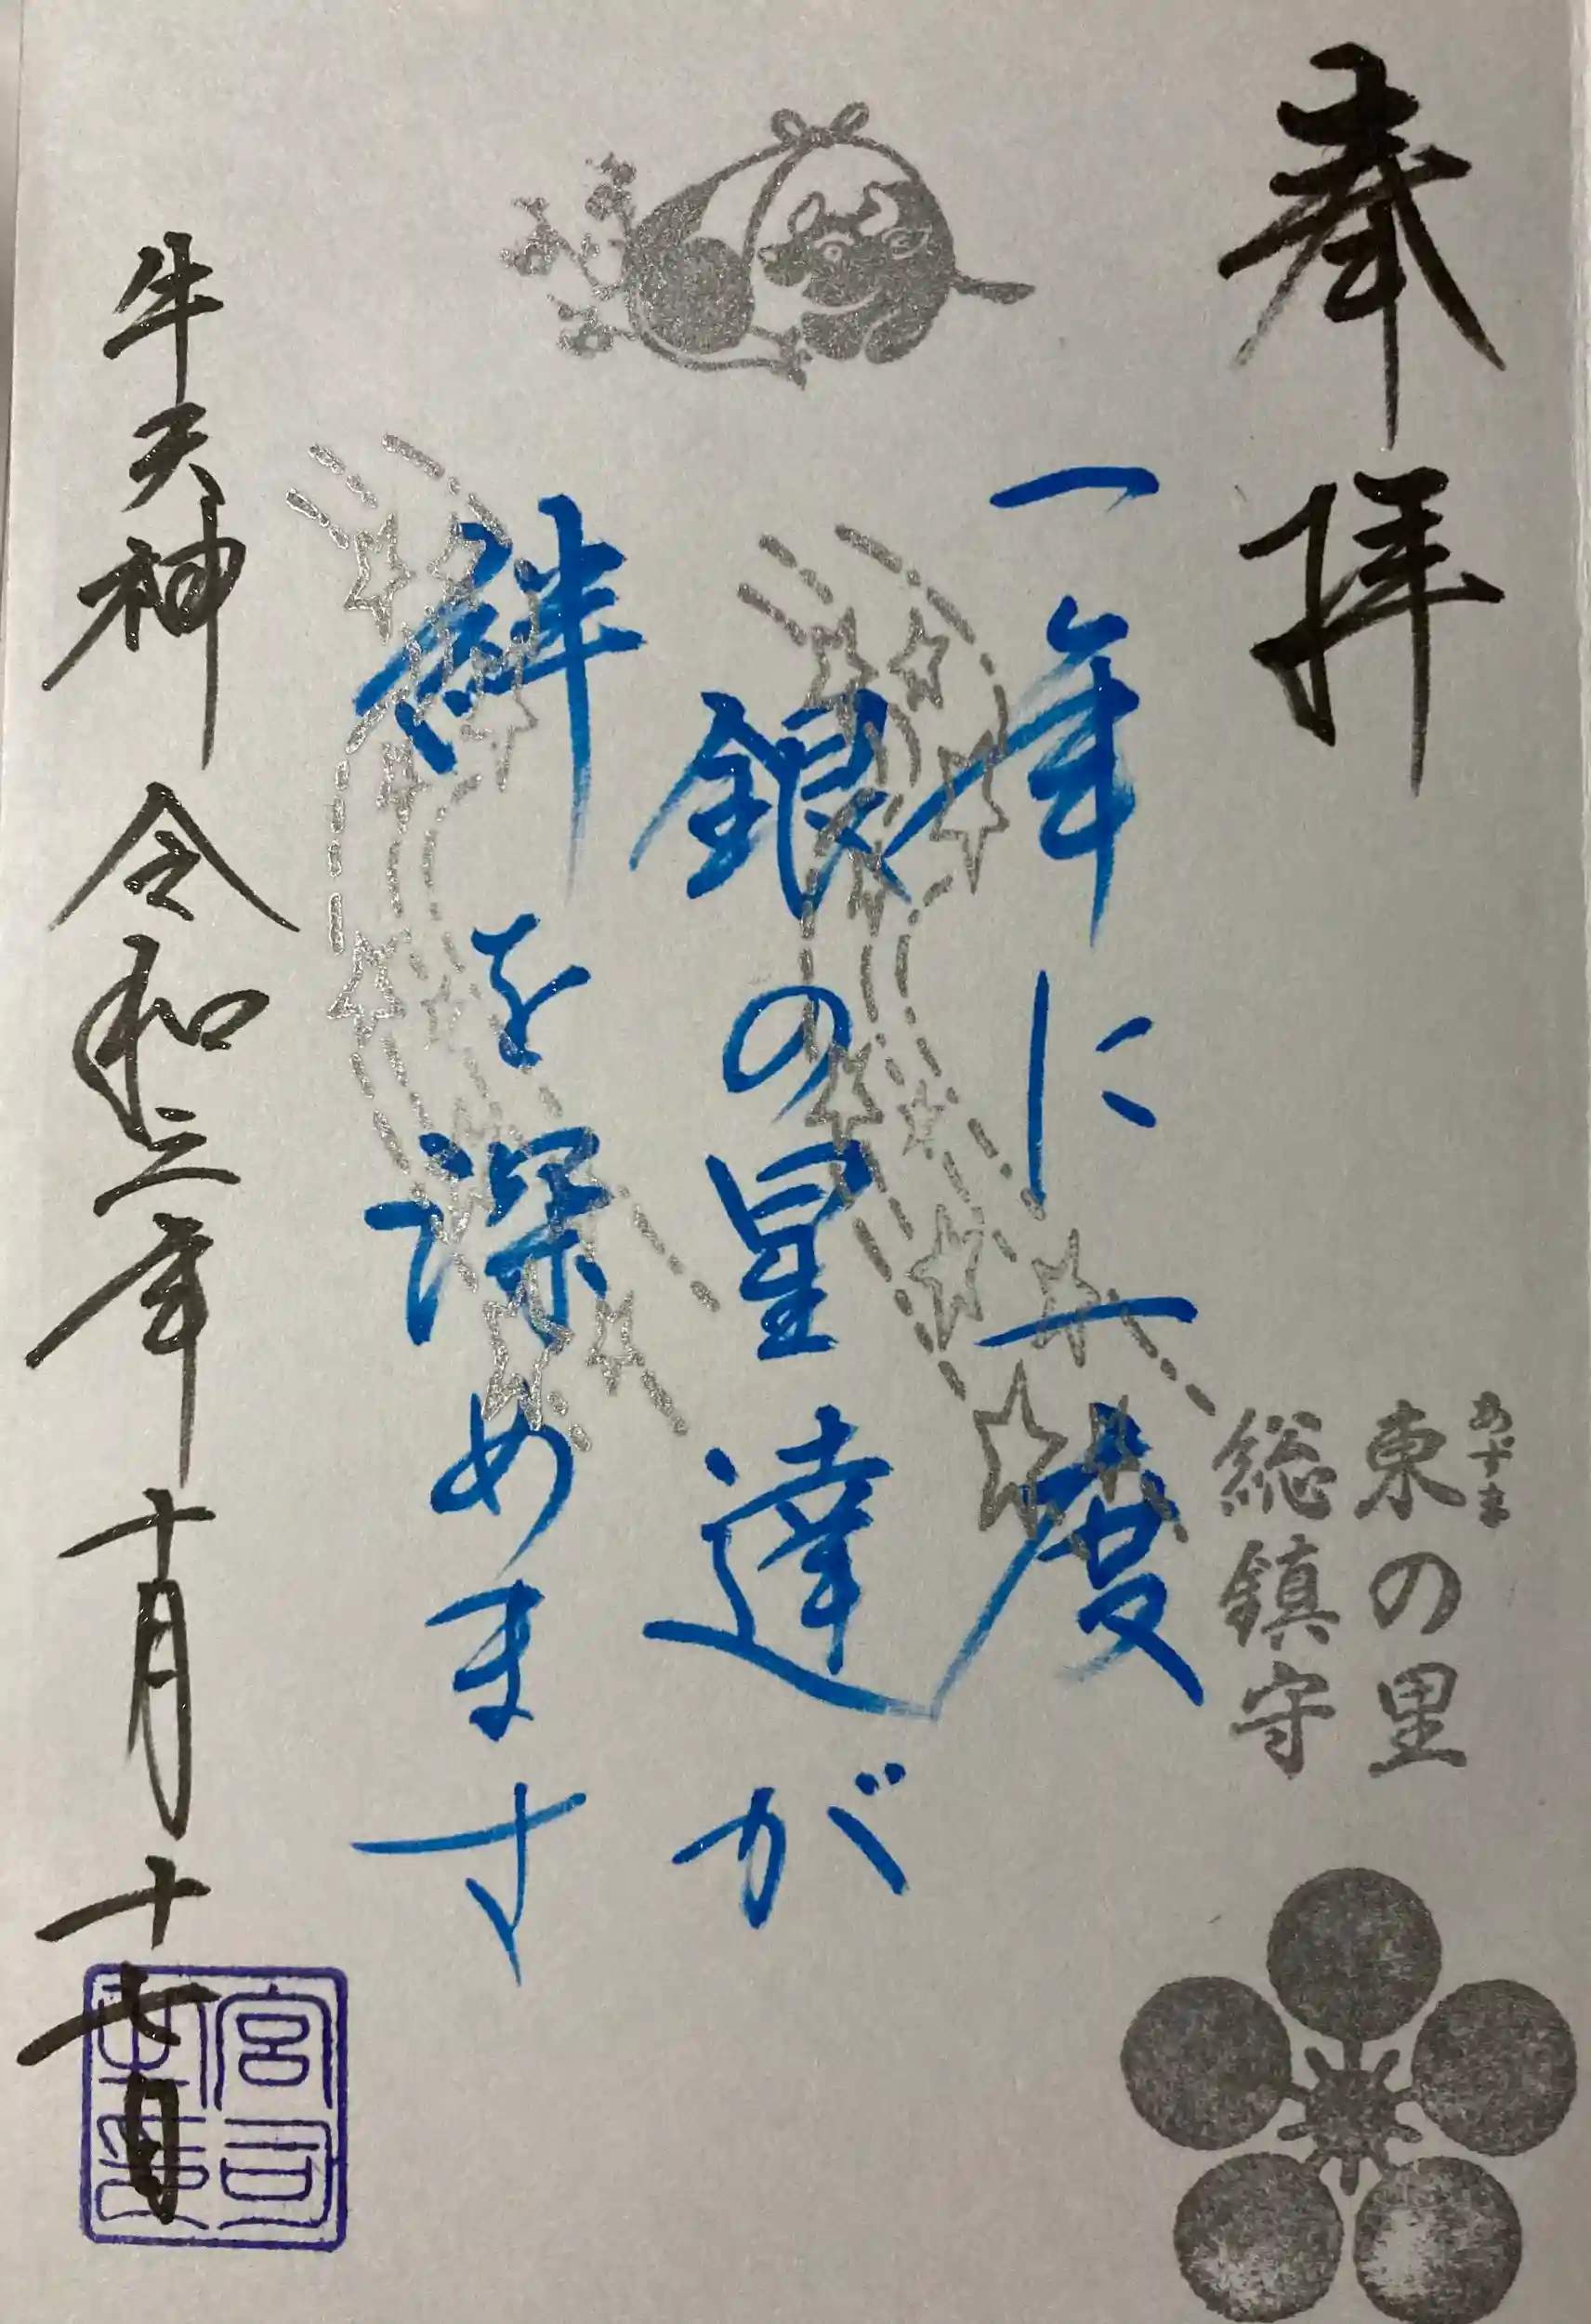 奉拝
あずま
東の里
総鎮守
一年に一度
銀の星達が
絆を深めます
牛天神 令和三年十月十七日
宮司